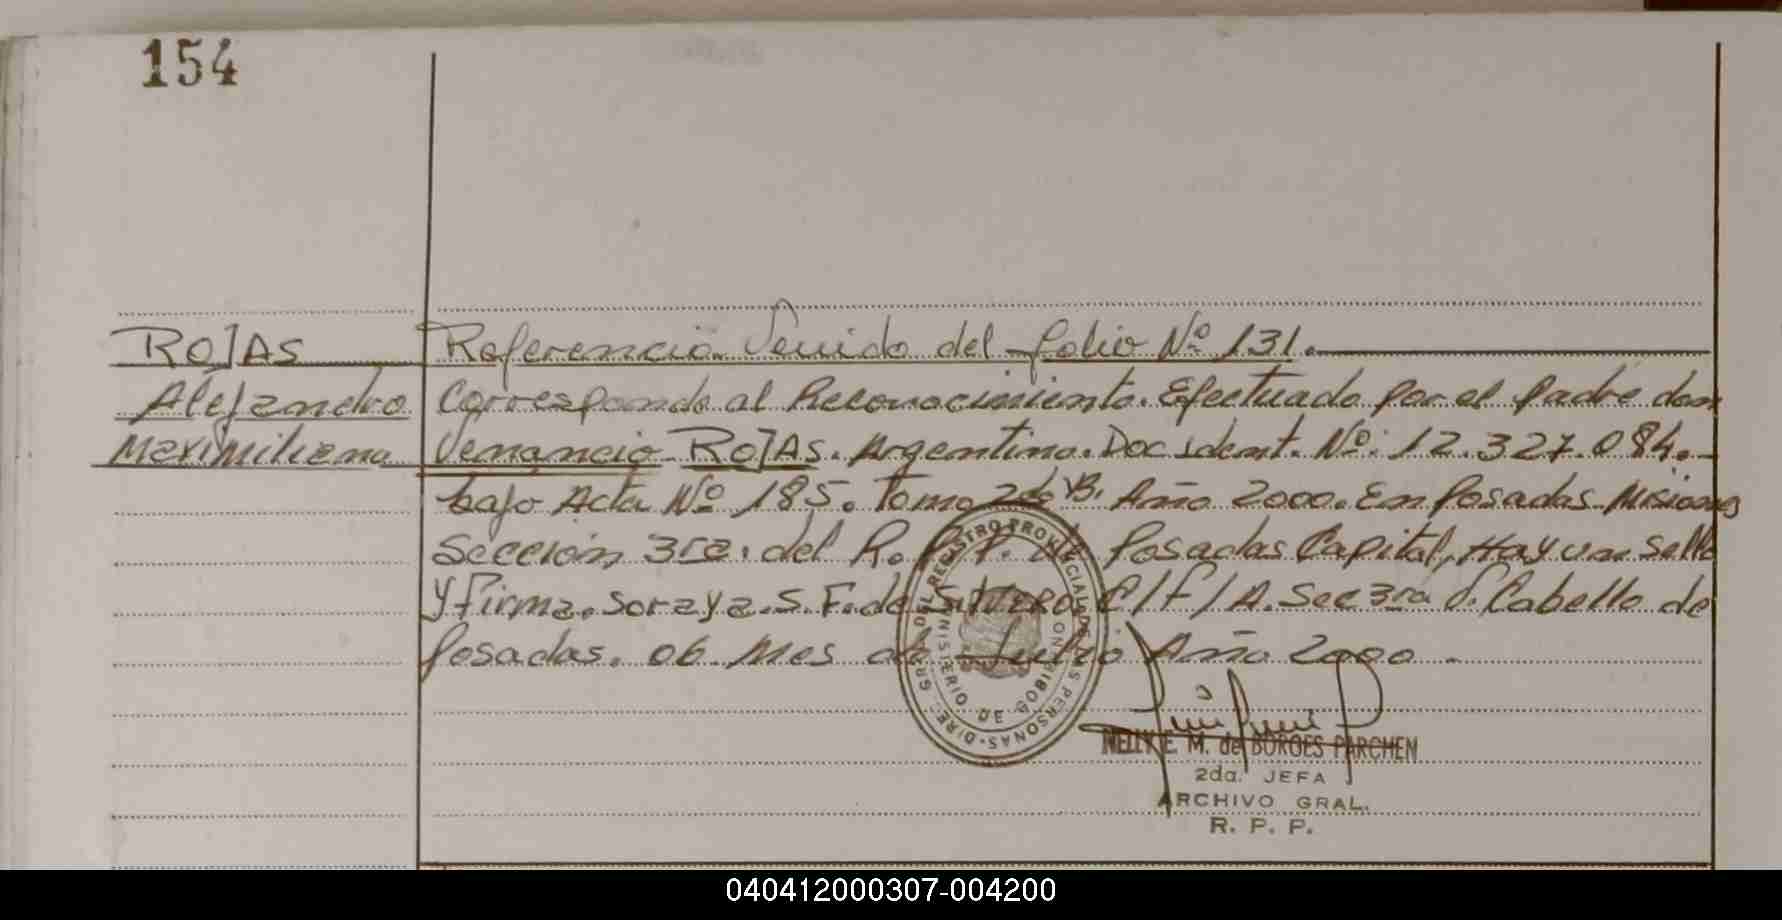 154
ROJAS
Alejandro
Maximiliano
Referencia Venido del folio Nº 131.
Corresponde al Reconocimiento. Efectuado por el padre don
Venancio ROJAS. Argentino. Doc ident. Nº: 12.327.084.-
bajo Acta Nº 185. Tomo 2do "B". Año 2000. En Posadas Misiones
Sección 3ra. del R. P. P. de Posadas Capital, Hay un sello
y firma. Soraya. S. F. de C/F/A. Sec 3ra S. Cabello de
Posadas. 06 Mes de Julio Año 2000.-
DIRE. GRAL. DEL REGISTRO PROVINCIAL DE LAS PERSONAS
MINISTERIO DE GOB.
NELLY E. M. de BORGES PARCHEN
2da. JEFA
ARCHIVO GRAL.
R. P. P.
040412000307-004200